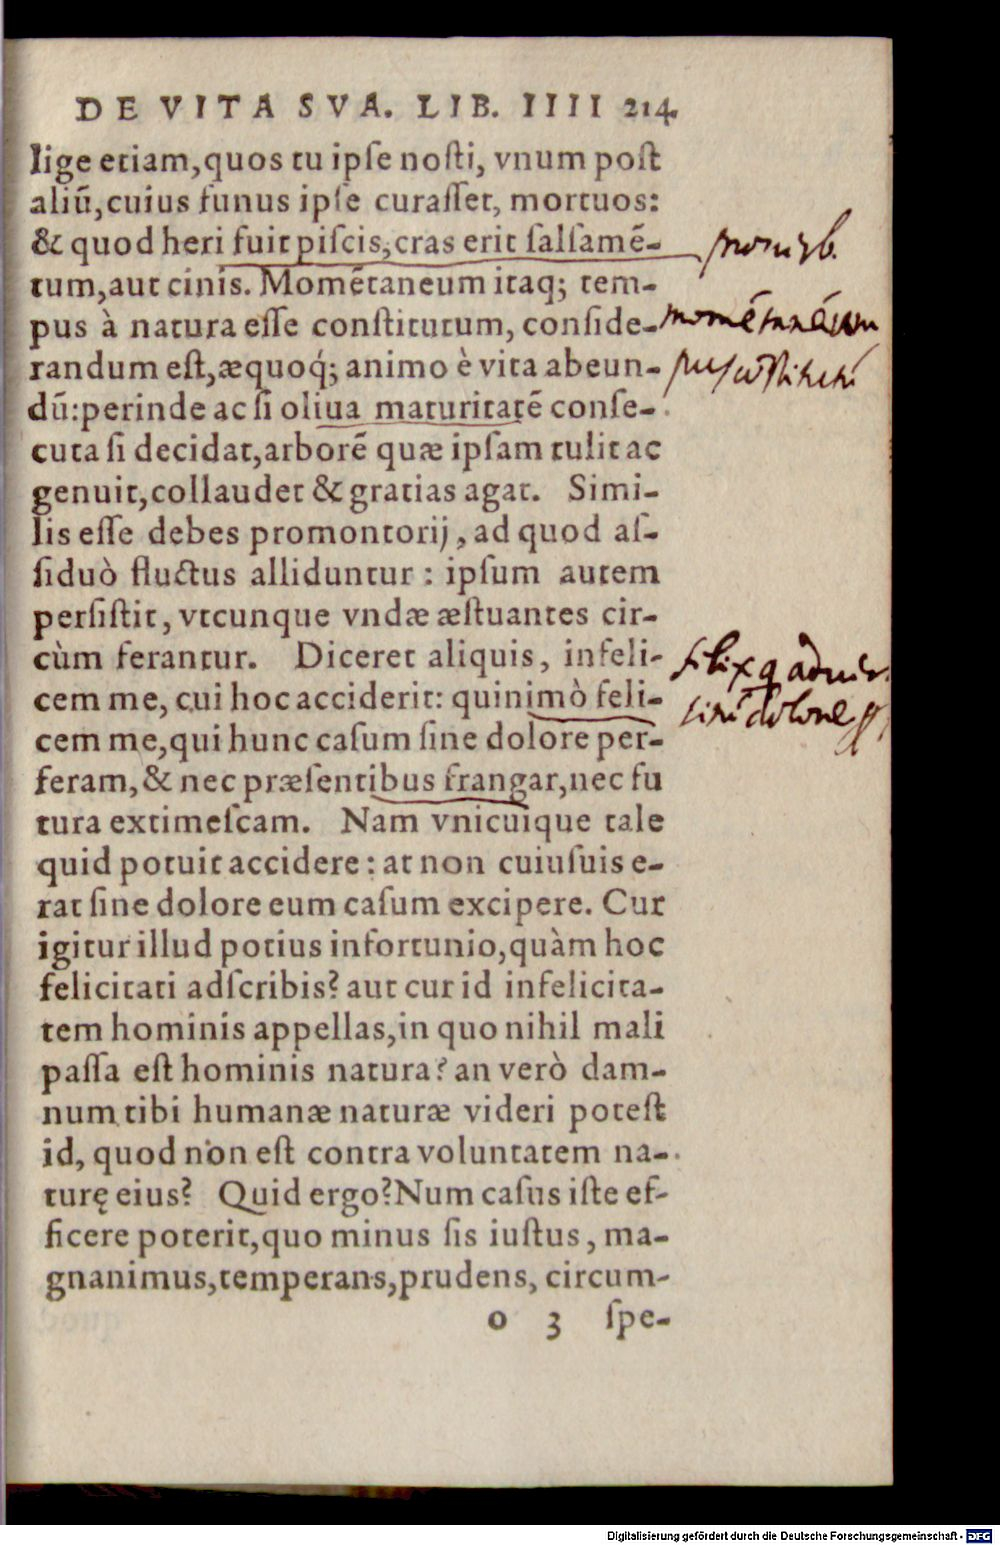 DE VITA SVA. LIB. IIII 214
lige etiam, quos tu ipſe noſti, vnum poſt
aliũ, cuius funus ipſe curaſſet, mortuos:
& quod heri fuit piſcis, cras erit ſalſamẽ-
tum, aut cinis. Momẽtaneum itaq; tem-
pus à natura eſſe conſtitutum, conſide-
randum eſt, æquoq́; animo è vita abeun-
dũ: perinde ac ſi oliua maturitatẽ conſe-
cuta ſi decidat, arborẽ quæ ipſam tulit ac
genuit, collaudet & gratias agat. Simi-
lis eſſe debes promontorij, ad quod aſ-
ſiduò fluctus alliduntur: ipſum autem
perſiſtit, vtcunque vndæ æſtuantes cir-
cùm ferantur. Diceret aliquis, infeli-
cem me, cui hoc acciderit: quinimò feli-
cem me, qui hunc caſum ſine dolore per-
feram, & nec præſentibus frangar, nec fu
tura extimeſcam. Nam vnicuique tale
quid potuit accidere: at non cuiuſuis e-
rat ſine dolore eum caſum excipere. Cur
igitur illud potius infortunio, quàm hoc
felicitati adſcribis? aut cur id infelicita-
tem hominis appellas, in quo nihil mali
paſſa eſt hominis natura? an verò dam-
num tibi humanæ naturæ videri poteſt
id, quod non eſt contra voluntatem na-
turę eius? Quid ergo? Num caſus iſte ef-
ficere poterit, quo minus ſis iuſtus, ma-
gnanimus, temperans, prudens, circum-
o 3 ſpe-
Digitalisierung gefördert durch die Deutsche Forschungsgemeinschaft - DFG